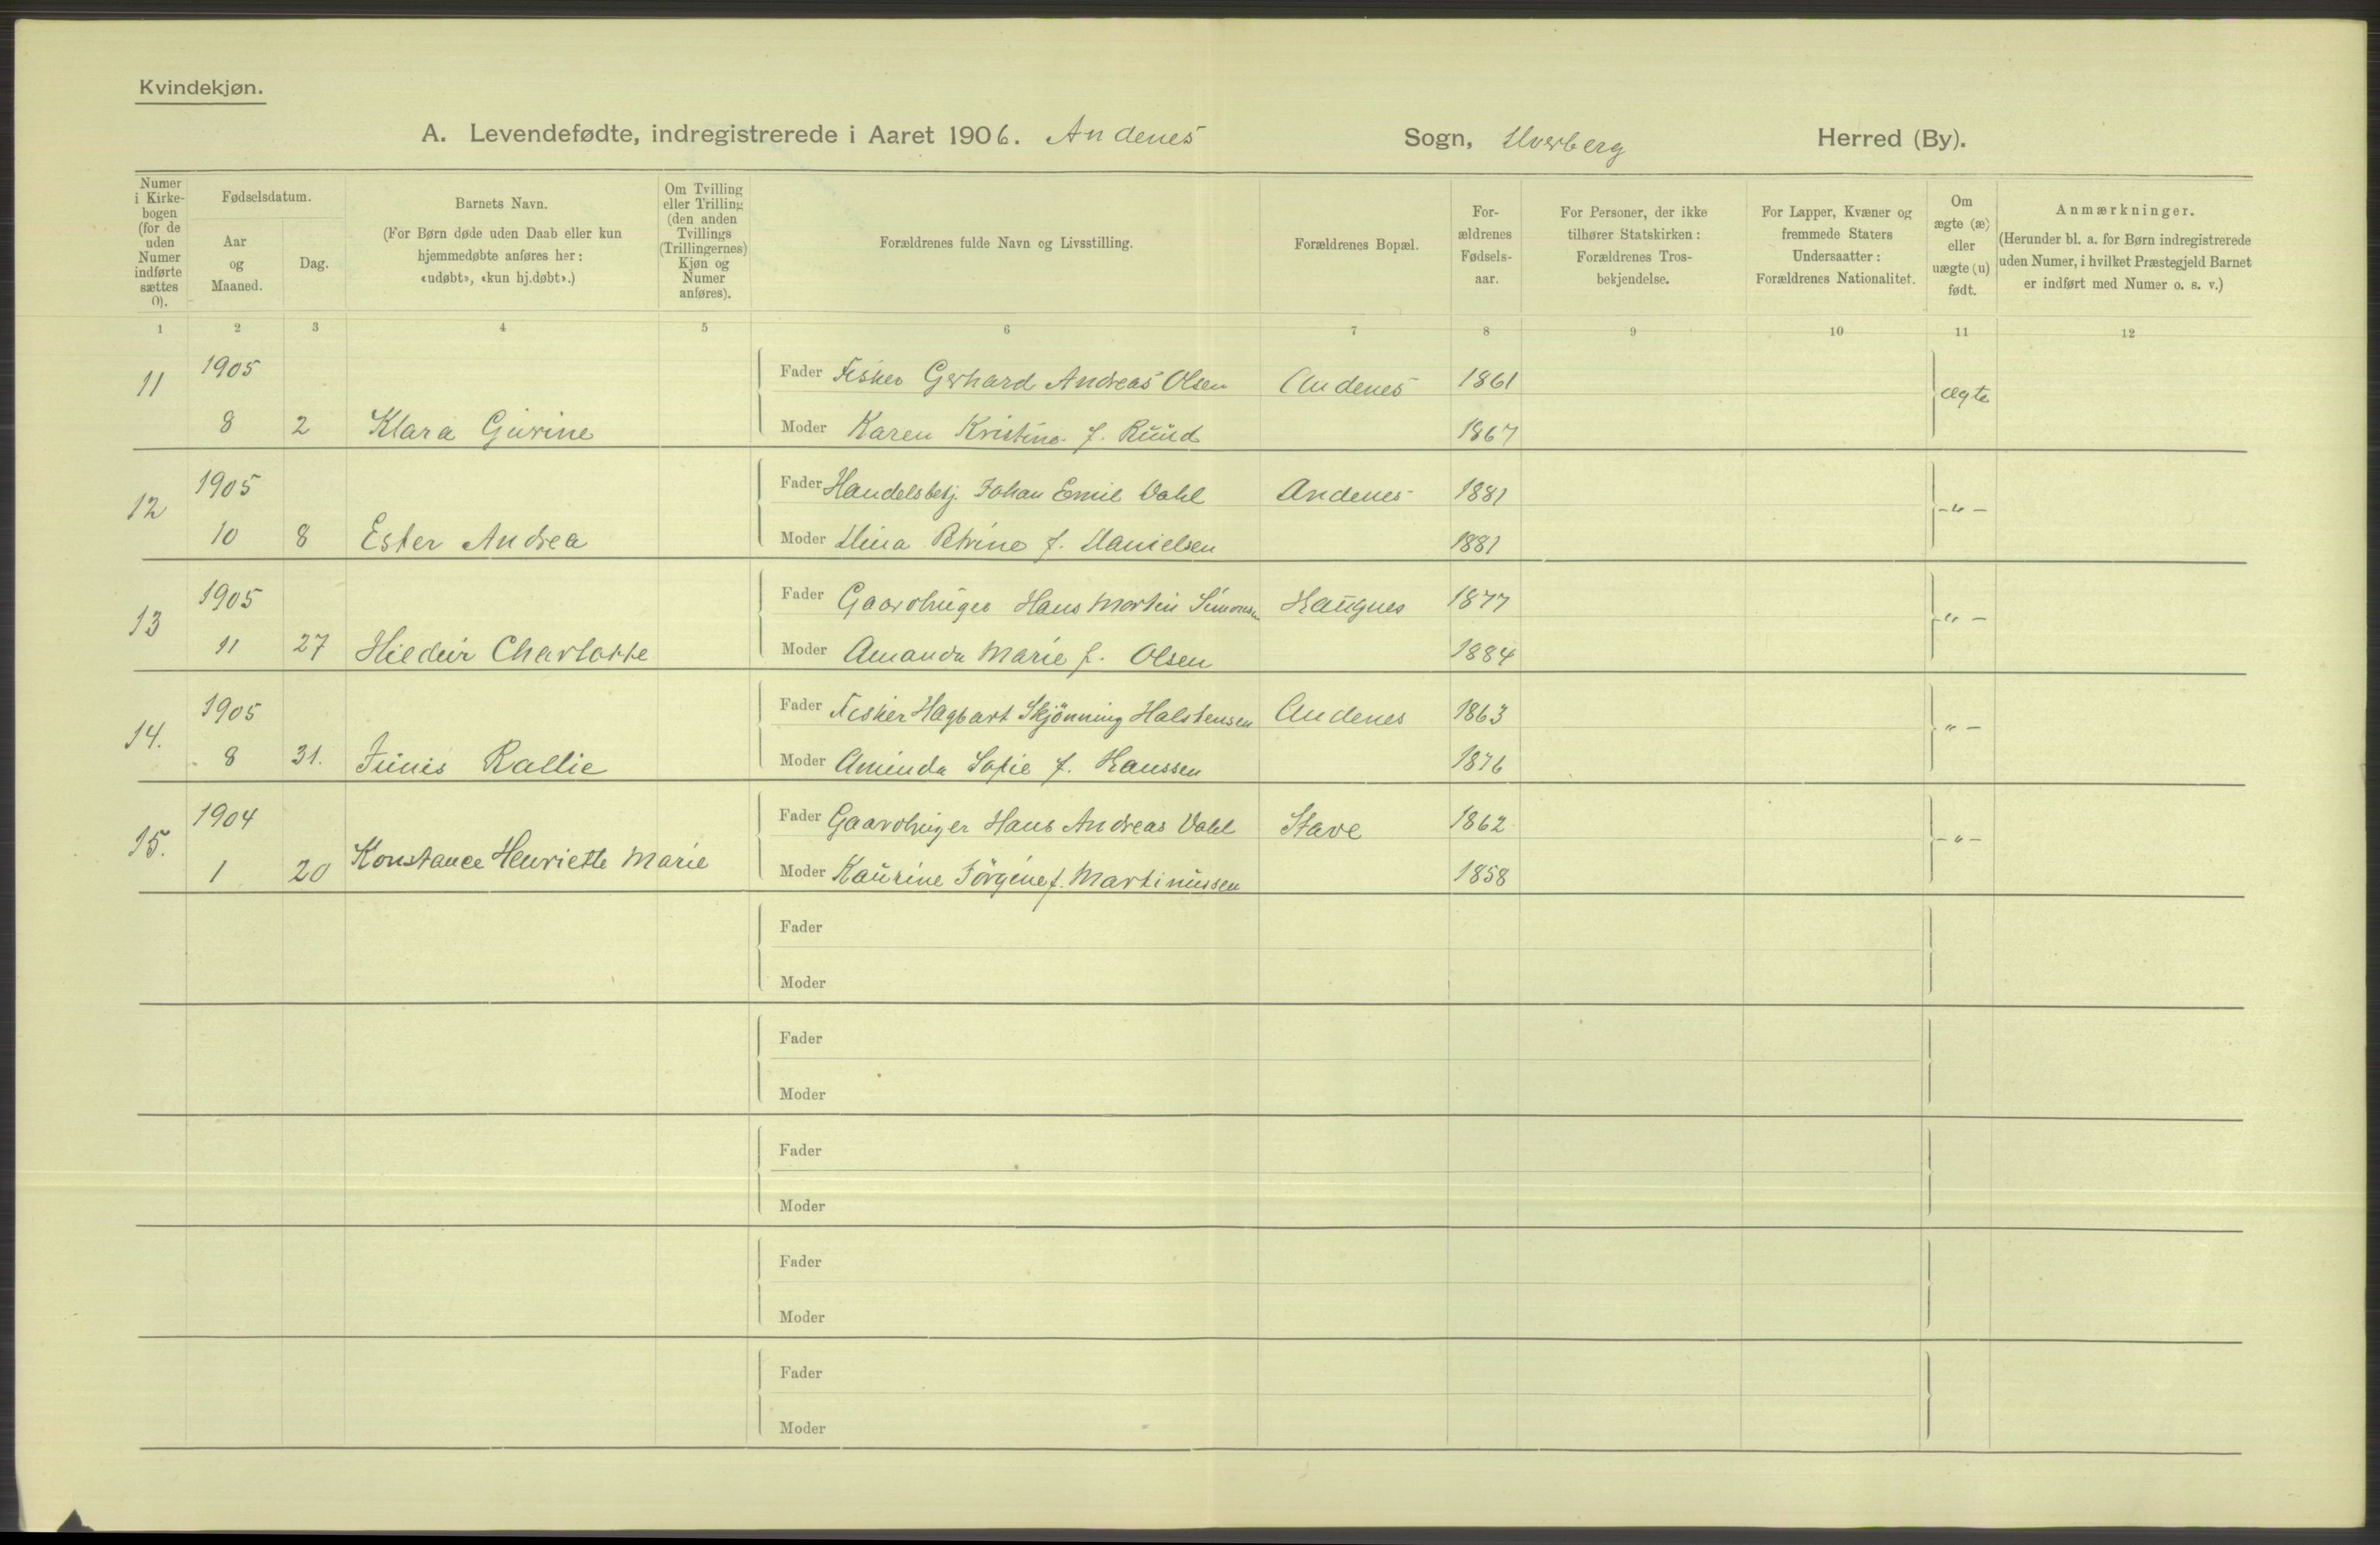 Kvindekjøn.
A. Levendefødte, indregistrerede i Aaret 1906. Andenes Sogn, Dverberg Herred (By).
Numer i Kirkebogen (for de uden Numer indførte sættes 0).
Fødselsdatum.
Aar og Maaned.
Dag.
Barnets Navn.
(For Børn døde uden Daab eller kun hjemmedøbte anføres her: «udøbt», «kun hj.døbt».)
Om Tvilling eller Trilling (den anden Tvillings (Trillingernes) Kjøn og Numer anføres).
Forældrenes fulde Navn og Livsstilling.
Forældrenes Bopæl.
Forældrenes Fødselsaar.
For Personer, der ikke tilhører Statskirken: Forældrenes Trosbekjendelse.
For Lapper, Kvæner og fremmede Staters Undersaatter: Forældrenes Nationalitet.
Om ægte (æ) eller uægte (u) født.
Anmærkninger.
(Herunder bl. a. for Børn indregistrerede uden Numer, i hvilket Præstegjeld Barnet er indført med Numer o. s. v.)
1 2 3 4 5 6 7 8 9 10 11 12
11 1905 Fader Fisker Gerhard Andreas Olsen Andenes 1861 ægte
8 2 Klara Gurine Moder Karen Kristine f. Ruud 1867
12 1905 Fader Handelsbetj. Johan Emil Dahl Andenes 1881 -"-
10 8 Ester Andrea Moder Dina Petrine f. Danielsen 1881
13 1905 Fader Gaardbruger Hans Martin Simonsen Haugnes 1877 -"-
11 27 Charlotte Moder Amanda Marie f. Olsen 1884
14. 1905 Fader Fisker Hagbart Skjönning Halstensen Andenes 1863 "-
8 31. Moder Aminda Sofie f. Hanssen 1876
15. 1904 Fader Gaardbruger Hans Andreas Dahl Stave 1862 -"-
1 20 Konstance Henriette Marie Moder Kaurine Jörgine f. Martinussen 1858
Fader
Moder
Fader
Moder
Fader
Moder
Fader
Moder
Fader
Moder